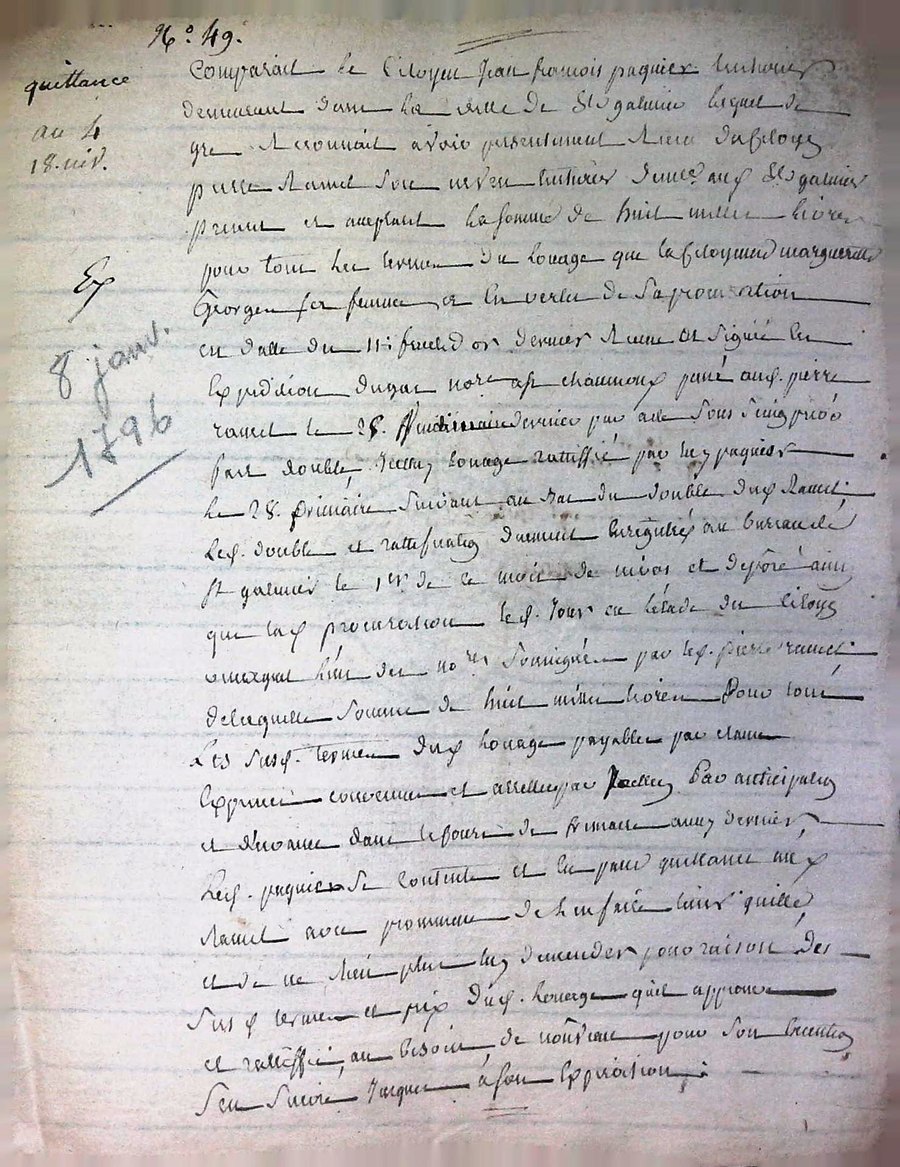 N.° 49.
quittance
au 4
18. niv.
Ex
8 janv.
1796
Comparait le Citoyen Jean francois paquier
demeurant dans la de St galmier lequel de
gre Reconnait avoir presentement Recu du Citoyen
pierre Ramel son neveu St galmier
present et acceptant la somme de huit mille livres
pour tous les termes du louage que la Citoyenne marguerite
George sa femme en vertu de sa procuration
en datte du 11: fructidor dernier Recue et signée en
Expedition passé aud. pierre
ramel le 28. dernier par acte sous seing privé
fait double, louage rattiffié par led paquier
le 28 frimaire suivant au bas du double dud Ramel,
Lesd. double et rattification duement enregistrés au bureau de
St galmier le 1er de ce mois de nivos et deposé ainsi
que lad procuration led. Jour en l'etude du Citoyen
l'un des nores soussignés par led. pierre ramel
de laquelle somme de huit mille livres pour tous
Les susd. termes dud louage payables par
convenu et par anticipation
et d'avance dans le cours de frimaire dernier
Led. paquier se contente et en passe quittance aud
Ramel avec promesse de l'en faire tenir quitte
et de ne Rien plus luy demander pour raison des
susd termes et prix dud. louage qu'il approuve
et rattiffie, au besoin, de nouveau pour son execution
jusques à son Expiration.